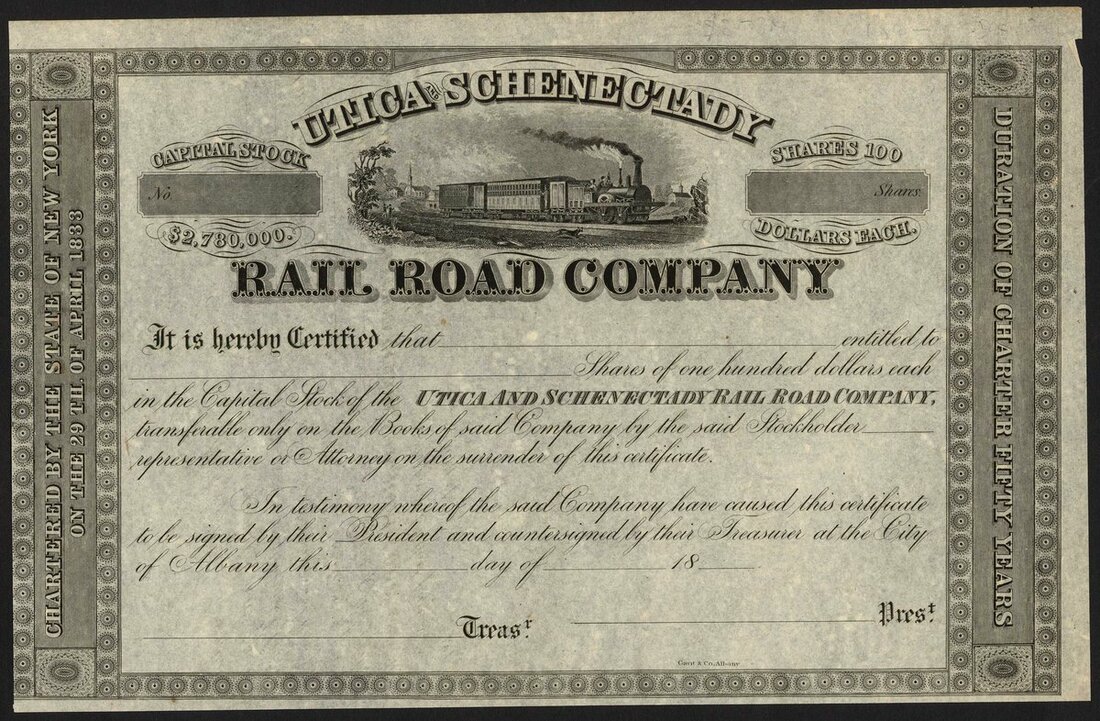 UTICA AND SCHENECTADY
CAPITAL STOCK
No
$2,780,000.
SHARES 100
Shares.
DOLLARS EACH.
RAIL ROAD COMPANY
It is hereby Certified that entitled to
Shares of one hundred dollars each
in the Capital Stock of the UTICA AND SCHENECTADY RAIL ROAD COMPANY,
transferable only on the Books of said Company by the said Stockholder
representative or Attorney on the surrender of this certificate.
In testimony whereof the said Company have caused this certificate
to be signed by their President and countersigned by their Treasurer at the City
of Albany this day of 18
Treasr.
Prest.
& Co. Albany
CHARTERED BY THE STATE OF NEW YORK
ON THE 29TH. OF APRIL 1833
DURATION OF CHARTER FIFTY YEARS